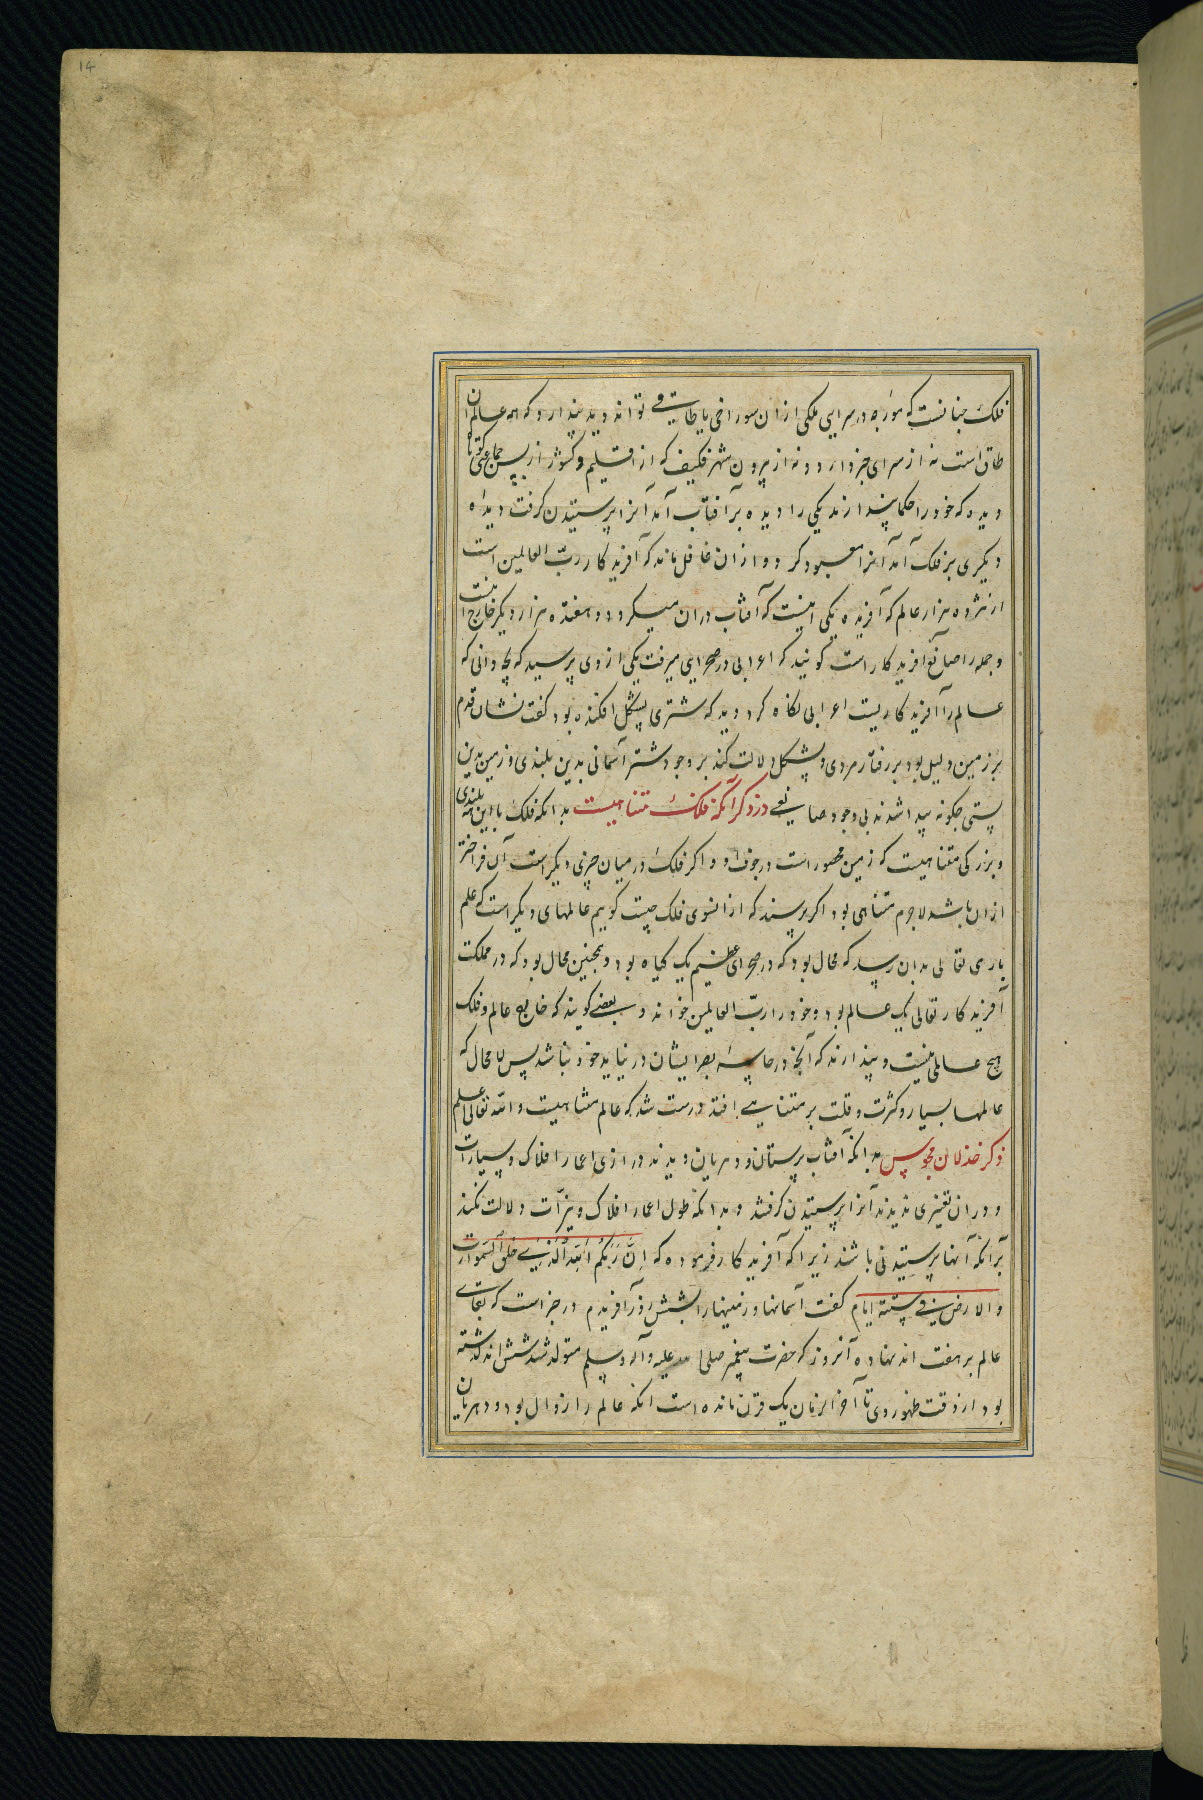 14
فلک چنانست که مورچه در سرایی ملکی از ان سوراخی یا طاقی تواند دید پندارد که همه عالم ان
طاق است نه از سرای خبر دارد و نه از بیرون شهر فکیف که از اقلیم و کشور از پس جماعتی
دیده که خود را حکما پندارند یکی را دیده بر آفتاب آمد آنرا پرستیدن گرفت دیده
دیگری بر فلک آمد آنرا معبود کرد و از ان غافل ماند که آفریدکار رب العالمین است
از هژده هزار عالم که آفریده یکی اینست که آفتاب در ان میگردد و هفده هزار دیگر خارج اینست
و جمله را صانع آفریدکار است گویند که اعرابی در صحرایی میرفت یکی از وی پرسید که بچه دانی که
عالم را آفریدکاریست اعرابی نگاه کرد دید که شتری پشکل افکنده بود گفت نشان قدم
بر زمین دلیل بود بر رفتار مردی و پشکل دلالت کند بر وجود شتر آسمانی بدین بلندی و زمین بدین
پستی چگونه پیدا شد بی وجود صانعی در ذکر آنکه فلک متناهیست بدانکه فلک با این همه بلندی
و بزرگی متناهیست که زمین محصور است در جوف او و اگر فلک در میان چیزی دیگر است آن فراختر
از ان باشد لاجرم متناهی بود اگر پرسند که از انسوی فلک چیست گوییم عالمهای دیگر است که علم
باری تعالی بدان رسد که محال بود که در صحرای عظیم یک گیاه بود و همچنین محال بود که در مملکت
آفریدکار تعالی یک عالم بود و خود را رب العالمین خواند و بعضی گویند که خارج عالم و فلک
هیچ عالمی نیست و پندارند که آنچه در حاسه بصر ایشان در نیاید خود نباشد پس لا محال که
عالمها بسیار و کثرت و قلت بر متناهی افتد درست شد که عالم متناهیست و الله تعالی اعلم
ذکر خذلان مجوس بدانکه آفتاب پرستان و دهریان دیدند درازی اعمار افلاک و سیارات
و در ان تغییری ندیدند آنرا پرستیدن گرفتند و بدانکه طول اعمار افلاک و نیرات دلالت نکند
بر آنکه آنها پرستیدنی باشند زیرا که آفریدکار فرموده که ان ربکم الله الذی خلق السموات
والارض فی ستة ایام گفت آسمانها و زمینها را بشش روز آفریدم در خبر است که بقای
عالم بر هفت اند نهاده آنروز که حضرت پیغمبر صلی الله علیه وآله وسلم متولد شد شش اند گذشته
بود از وقت ظهور وی تا آخر الزمان یک قرن مانده است آنکه عالم را زوال بود و دهریان